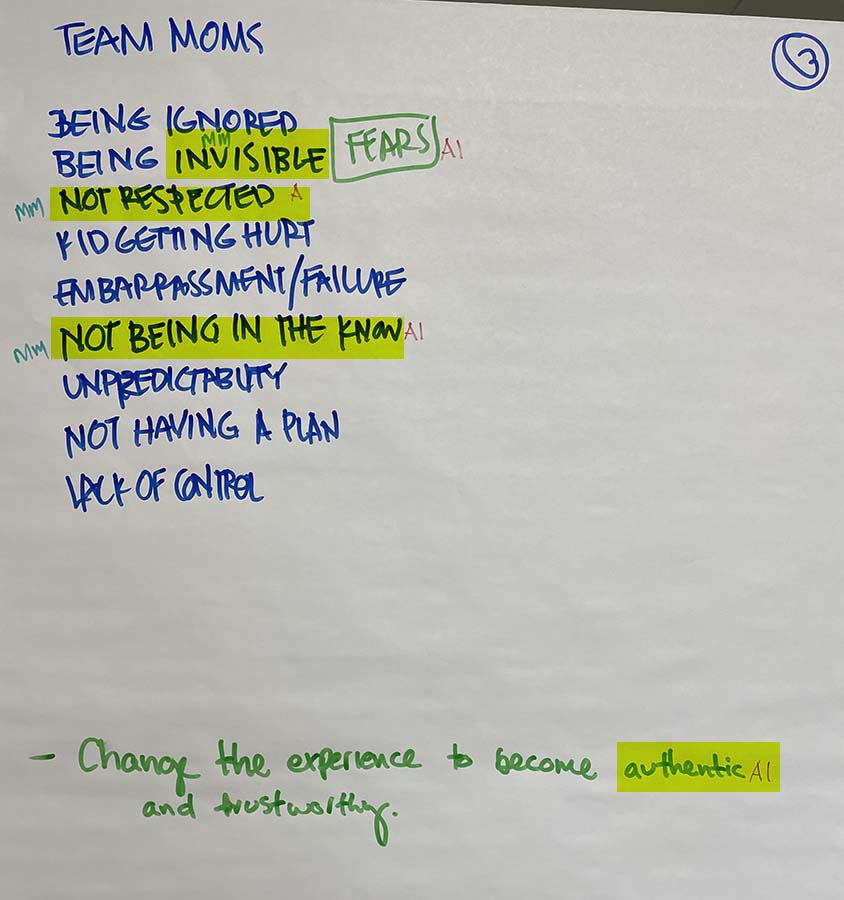 TEAM MOMS
3
BEING IGNORED
MM
BEING INVISIBLE FEARS AI
MM NOT RESPECTED A
KID GETTING HURT
EMBARRASSMENT/FAILURE
MM NOT BEING IN THE KNOW AI
UNPREDICTABILITY
NOT HAVING A PLAN
LACK OF CONTROL
- Change the experience to become authentic AI
and trustworthy.